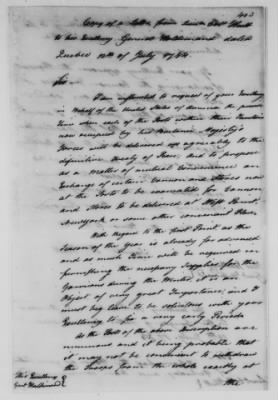 Copy of a letter from Lieut. Col. Hull
to his Excellency General Haldimand dated
Quebec 12th of July 1784.
Sir
I am instructed to request of your Excellency
in Behalf of the United States of America the precise
Time when each of the Posts within their Territories
now occupied by his Britannic Majesty's
Forces will be delivered up agreeably to the
definitive Treaty of Peace, and to propose
as a Matter of mutual Convenience an
Exchange of certain Cannon and Stores now
at the Posts to be evacuated for Cannon
and Stores to be delivered at West Point,
New York or some other convenient Place.
With Regard to the first Point as the
Season of the year is already far advanced
and as much Time will be required in
furnishing the necessary Supplies for the
Garrisons during the Winter, it is an
Object of very great Importance, and I
must beg leave to be solicitous with your
Excellency to fix a very early Period.
As the Posts of the above description are
numerous and it being probable that
it may not be convenient to withdraw
the Troops from the whole exactly at
the
His Excellency
Genl Haldimand